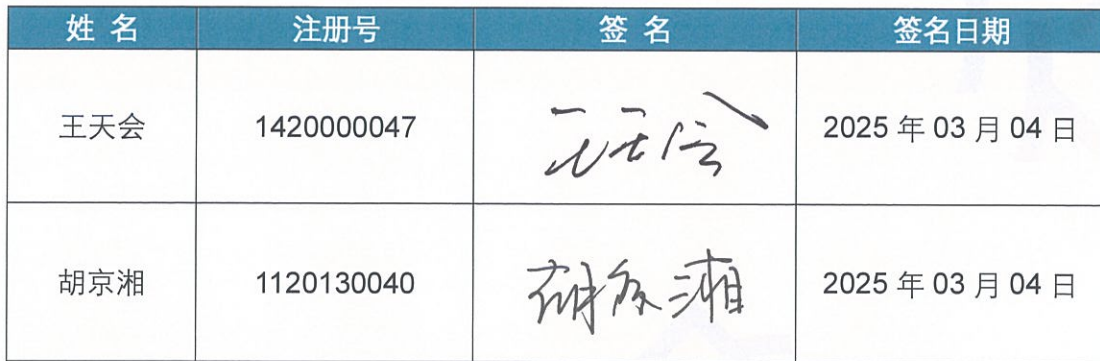 姓 名 注册号 签 名 签名日期
王天会 1420000047 王天会 2025 年 03 月 04 日
胡京湘 1120130040 胡京湘 2025 年 03 月 04 日